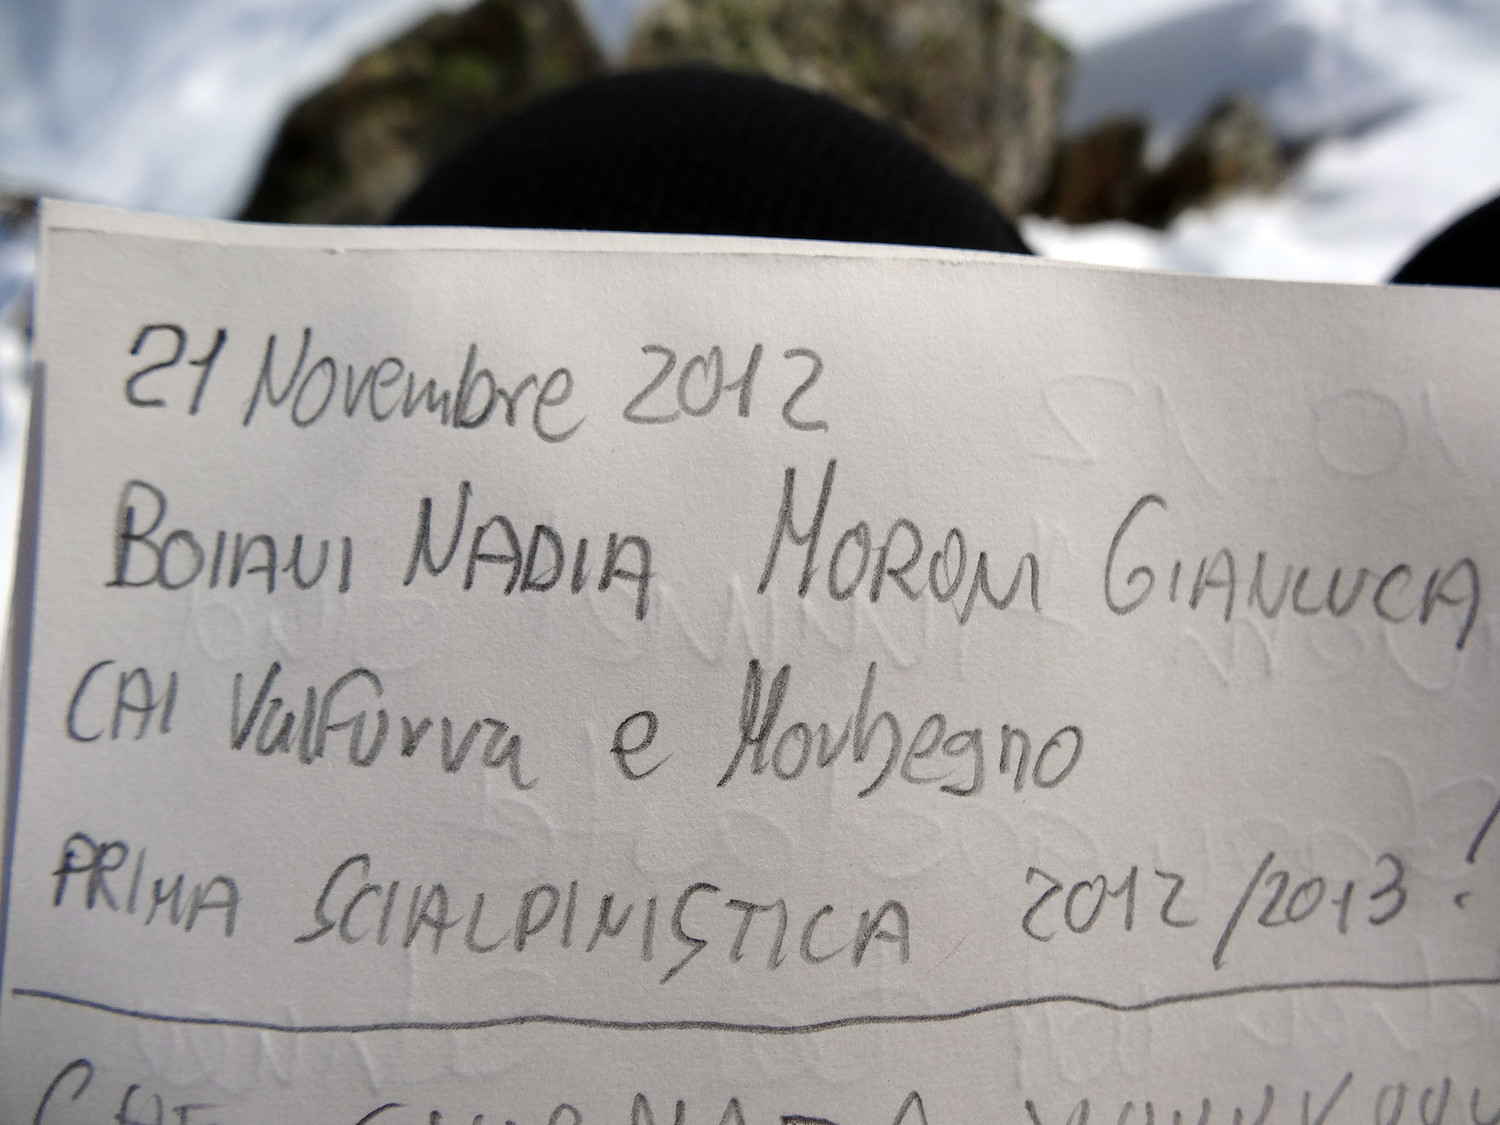 21 Novembre 2012
BOIANI NADIA MORONI GIANLUCA
CAI Valfurva e Morbegno
PRIMA SCIALPINISTICA 2012/2013!
CHE